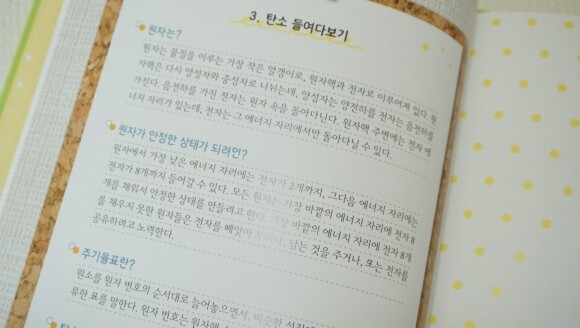 3. 탄소 들여다보기
원자는?
원자는 물질을 이루는 가장 작은 알갱이로, 원자핵과 전자로 이루어져 있다. 원
자핵은 다시 양성자와 중성자로 나뉘는데, 양성자는 양전하를 전자는 음전하를
가진다. 음전하를 가진 전자는 원자 속을 돌아다닌다. 원자핵 주변에는 전자 에
너지 자리가 있는데, 전자는 그 에너지 자리에서만 돌아다닐 수 있다.
원자가 안정한 상태가 되려면?
원자에서 가장 낮은 에너지 자리에는 전자가 2개까지, 그다음 에너지 자리에는
전자가 8개까지 들어갈 수 있다. 모든 원자는 가장 바깥의 에너지 자리에 전자 8
개를 채워서 안정한 상태를 만들려고 한다. 가장 바깥의 에너지 자리에 전자 8개
를 채우지 못한 원자들은 전자를 빼앗아 오거나, 남는 것을 주거나, 또는 전자를
공유하려고 노력한다.
주기율표란?
원소를 원자 번호의 순서대로 늘어놓으면서, 비슷한
류한 표를 말한다. 원자 번호는 원자핵